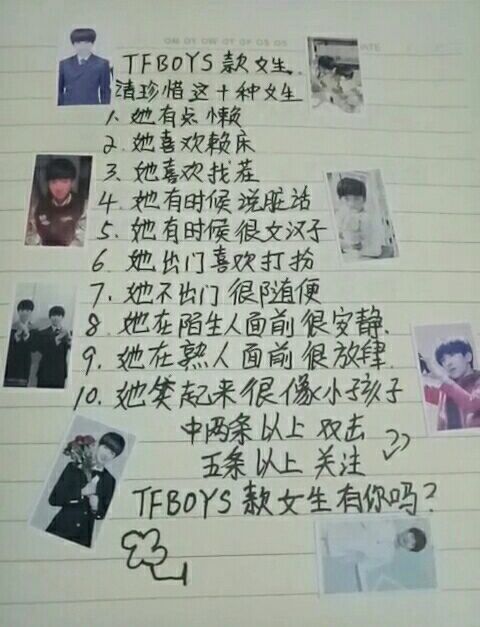 TFBOYS款女生.
请珍惜这十种女生
1. 她有点懒
2. 她喜欢赖床
3. 她喜欢找茬
4. 她有时候说脏话
5. 她有时候很女汉子
6. 她出门喜欢打扮
7. 她不出门很随便
8. 她在陌生人面前很安静.
9. 她在熟人面前很放肆.
10. 她笑起来很像小孩子
中两条以上 双击
五条以上 关注
TFBOYS 款女生有你吗?